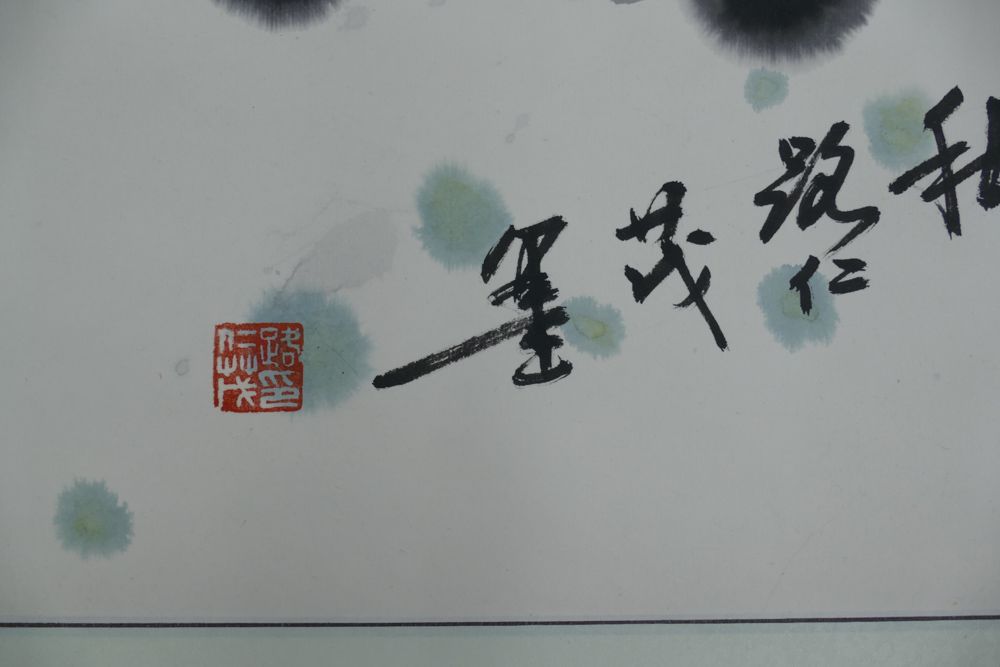 路仁茂墨
路印
仁茂